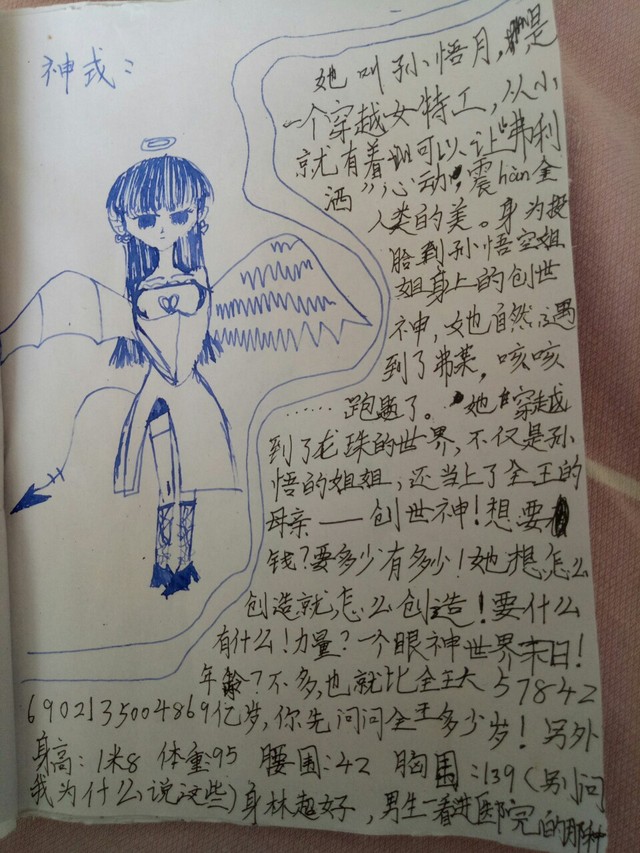 神戎：
她叫孙悟月，是
一个穿越女特工，从小
就有着可以让“弗利
洒”心动，震hàn全
人类的美。身为投
胎到孙悟空姐
姐身上的创世
神，她自然遇
到了弗莱，咳咳
……跑题了。她穿越
到了龙珠的世界，不仅是孙
悟的姐姐，还当上了全王的
母亲——创世神！想要
钱？要多少有多少！她想怎么
创造就怎么创造！要什么
有什么！力量？一个眼神世界末日！
年龄？不多，也就比全王大57842
6902135004869亿岁，你先问问全王多少岁！另外
身高：1米8 体重：95 腰围：42 胸围：139（别问
我为什么说这些）身林超好，男生一看进医院的那种